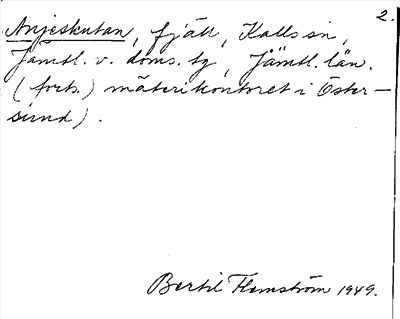 2.
Anjeskutan, fjäll, Kalls sn,
Jämtl. v. doms. tg, Jämtl. län.
(forts.) mäterikontoret i Öster-
sund).
Bertil Flemström 1949.